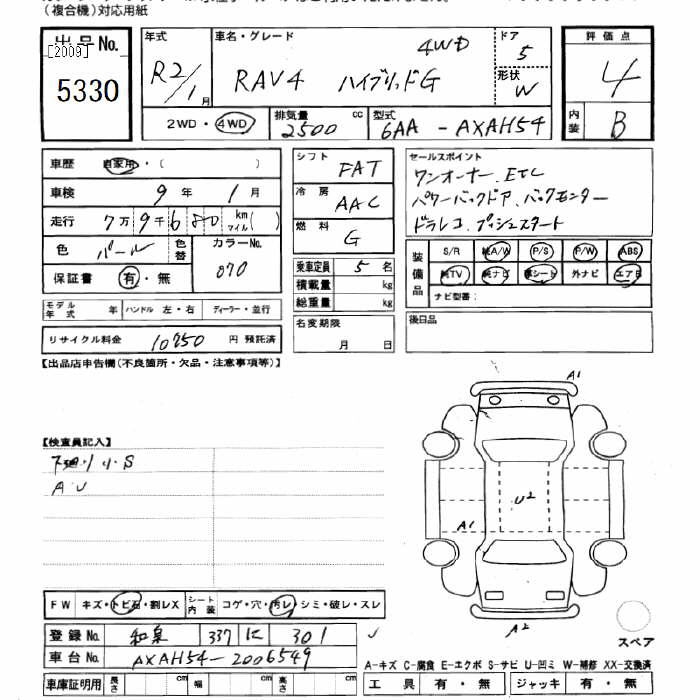 (複合機)対応用紙
出品No. [2009] 5330
年式 R2/1月
車名・グレード RAV4 ハイブリッドG 4WD
ドア 5
形状 W
評価点 4
内装 B
2WD・4WD
排気量 2500 cc
型式 6AA-AXAH54
車歴 自家用・( )
車検 9年 1月
走行 7万9千680 km マイル( )
色 パール 色替
カラーNo. 070
保証書 有・無
モデル年式 年 ハンドル 左・右 ディーラー・並行
リサイクル料金 10750 円 預託済
シフト FAT
冷房 AAC
燃料 G
乗車定員 5 名
積載量 kg
総重量 kg
名変期限 月 日
セールスポイント
ワンオーナー、ETC
パワーバックドア、バックモニター
ドラレコ、プッシュスタート
装備品 S/R 純A/W P/S P/W ABS
純TV 純ナビ 革シート 外ナビ エアB
ナビ型番:
後日品
【出品店申告欄(不良箇所・欠品・注意事項等)】
【検査員記入】
下廻り小S
AU
A1
U2
A1
A2
スペア
FW キズ・トビ石・割レX シート内装 コゲ・穴・汚レ・シミ・破レ・スレ
登録No. 和泉 337 に 301
車台No. AXAH54-2006549
車庫証明用 長さ cm 幅 cm 高さ cm
A-キズ C-腐食 E-エクボ S-サビ U-凹ミ W-補修 XX-交換済
工具 有・無 ジャッキ 有・無